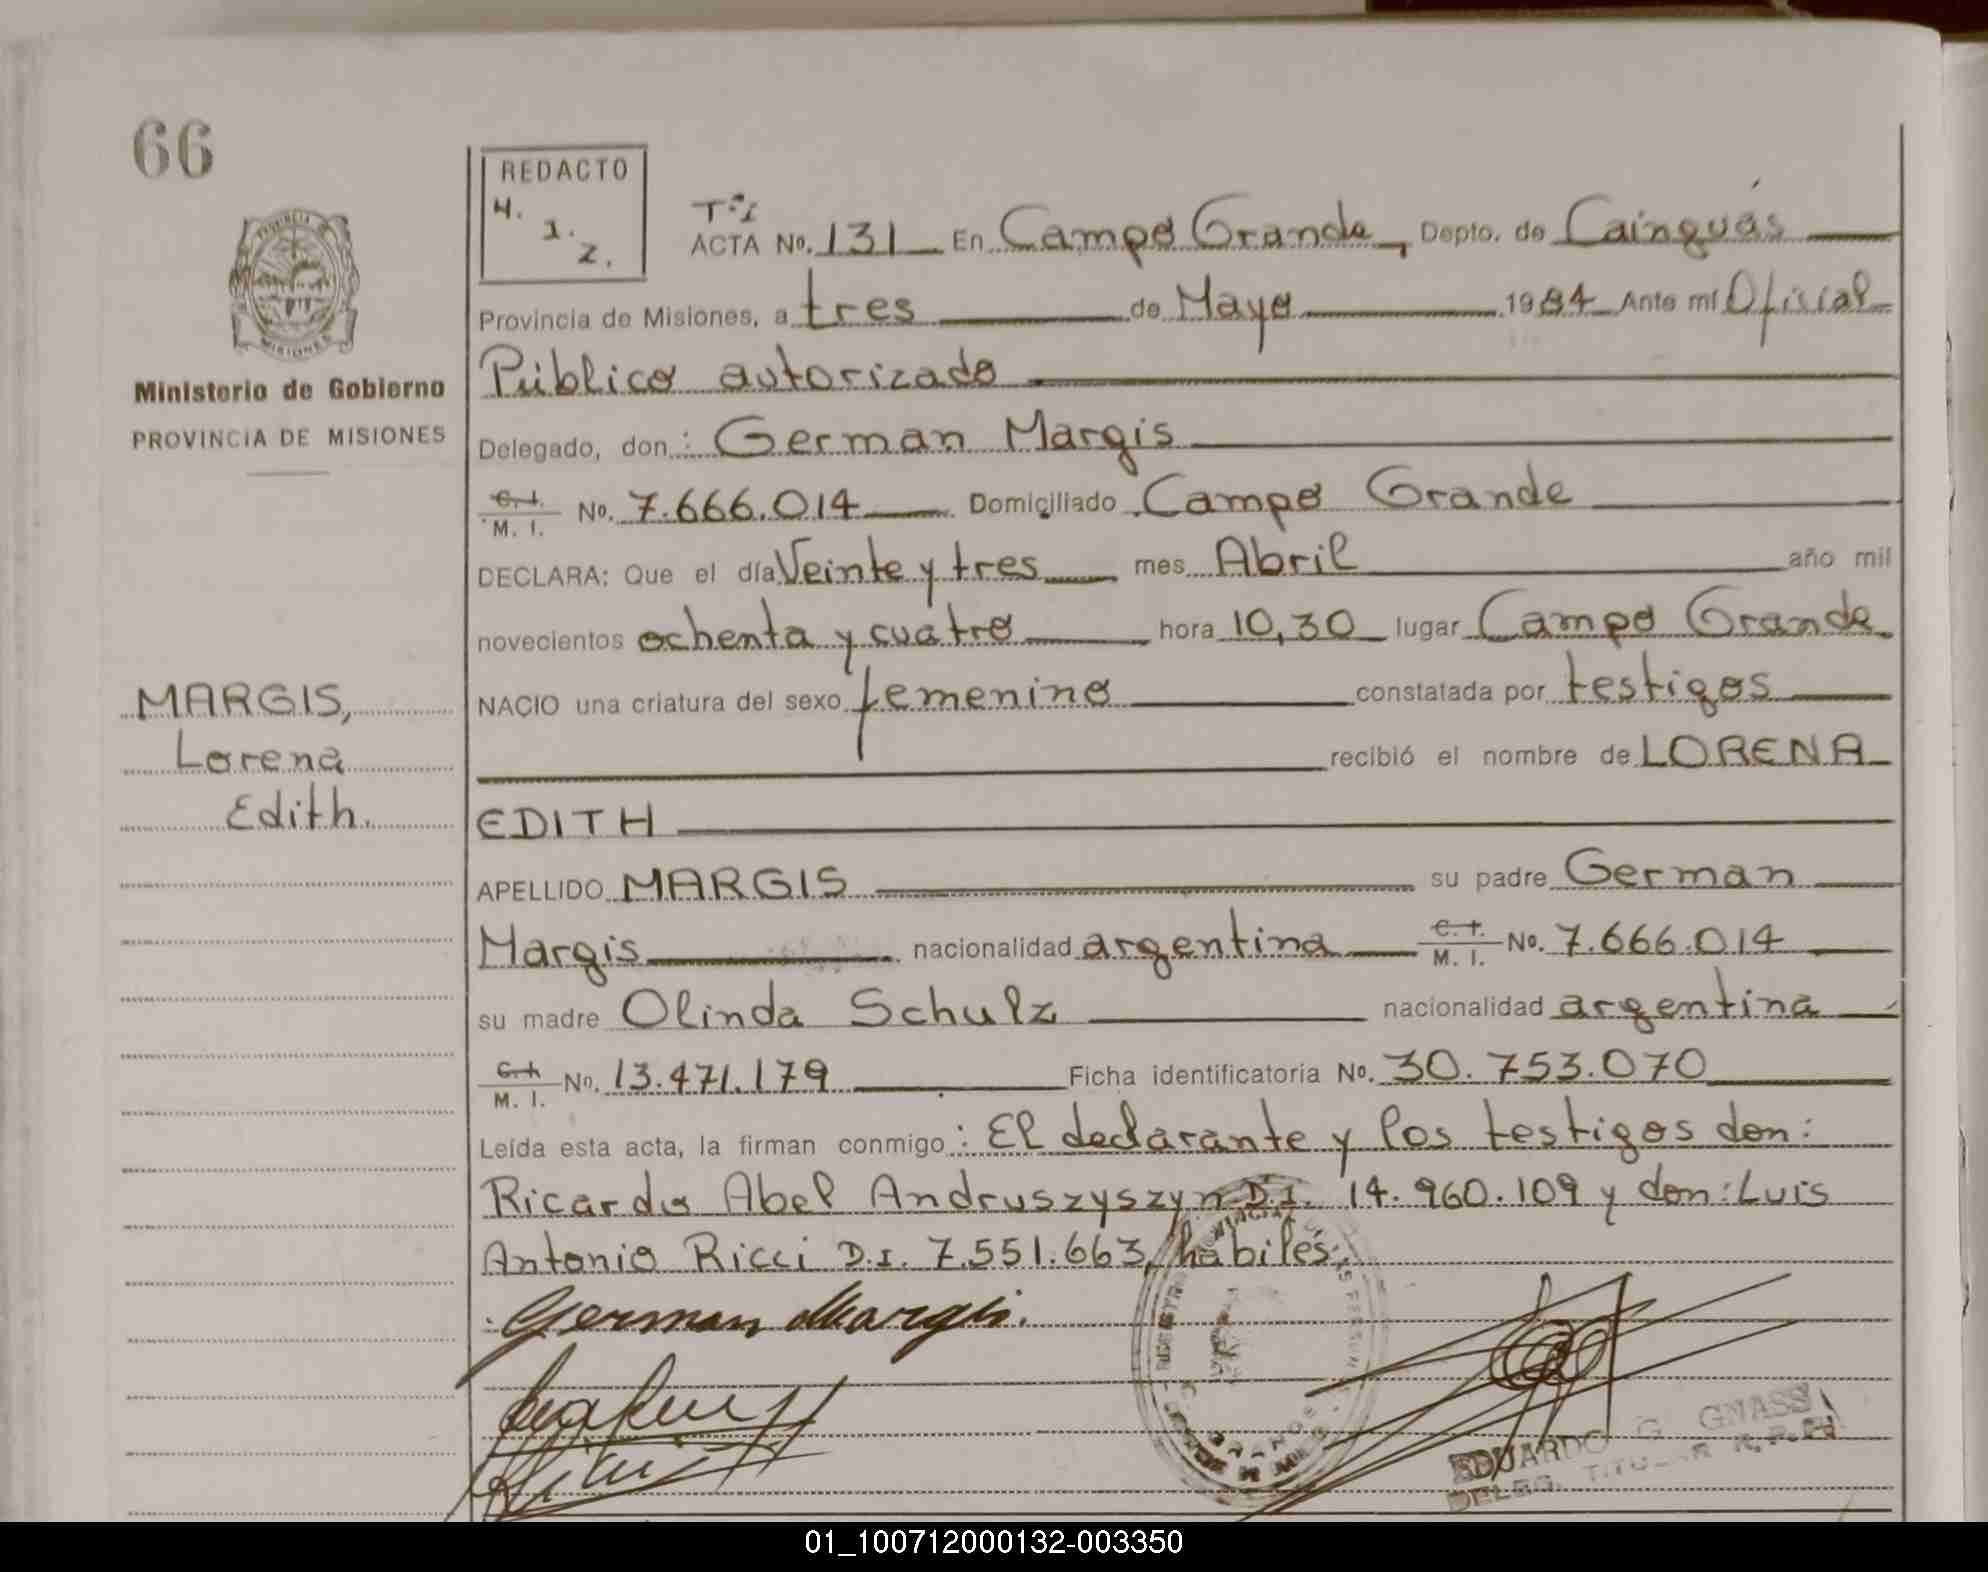 66
REDACTO
H.
1.
2.
Tº1
ACTA No. 131 En Campo Grande, Depto. de Cainguás
Provincia de Misiones, a tres de Mayo 1984 Ante mí Oficial
Público autorizado
Delegado, don: German Margis
C.I. M. I. No. 7.666.014 Domiciliado Campo Grande
DECLARA: Que el día Veinte y tres mes Abril año mil
novecientos ochenta y cuatro hora 10,30 lugar Campo Grande
NACIO una criatura del sexo femenino constatada por testigos
recibió el nombre de LORENA
EDITH
APELLIDO MARGIS su padre German
Margis nacionalidad argentina C.I. M. I. No. 7.666.014
su madre Olinda Schulz nacionalidad argentina
C.I. M. I. No. 13.471.179 Ficha identificatoria No. 30.753.070
Leída esta acta, la firman conmigo: El declarante y los testigos don:
Ricardo Abel Andruszyszyn D.I. 14.960.109 y don: Luis
Antonio Ricci D.I. 7.551.663, habiles;
German Margis.
EDUARDO G. GNASSI
DELEG. TITULAR R.P.
PROVINCIA
MISIONES
Ministerio de Gobierno
PROVINCIA DE MISIONES
MARGIS,
Lorena
Edith.
01_100712000132-003350